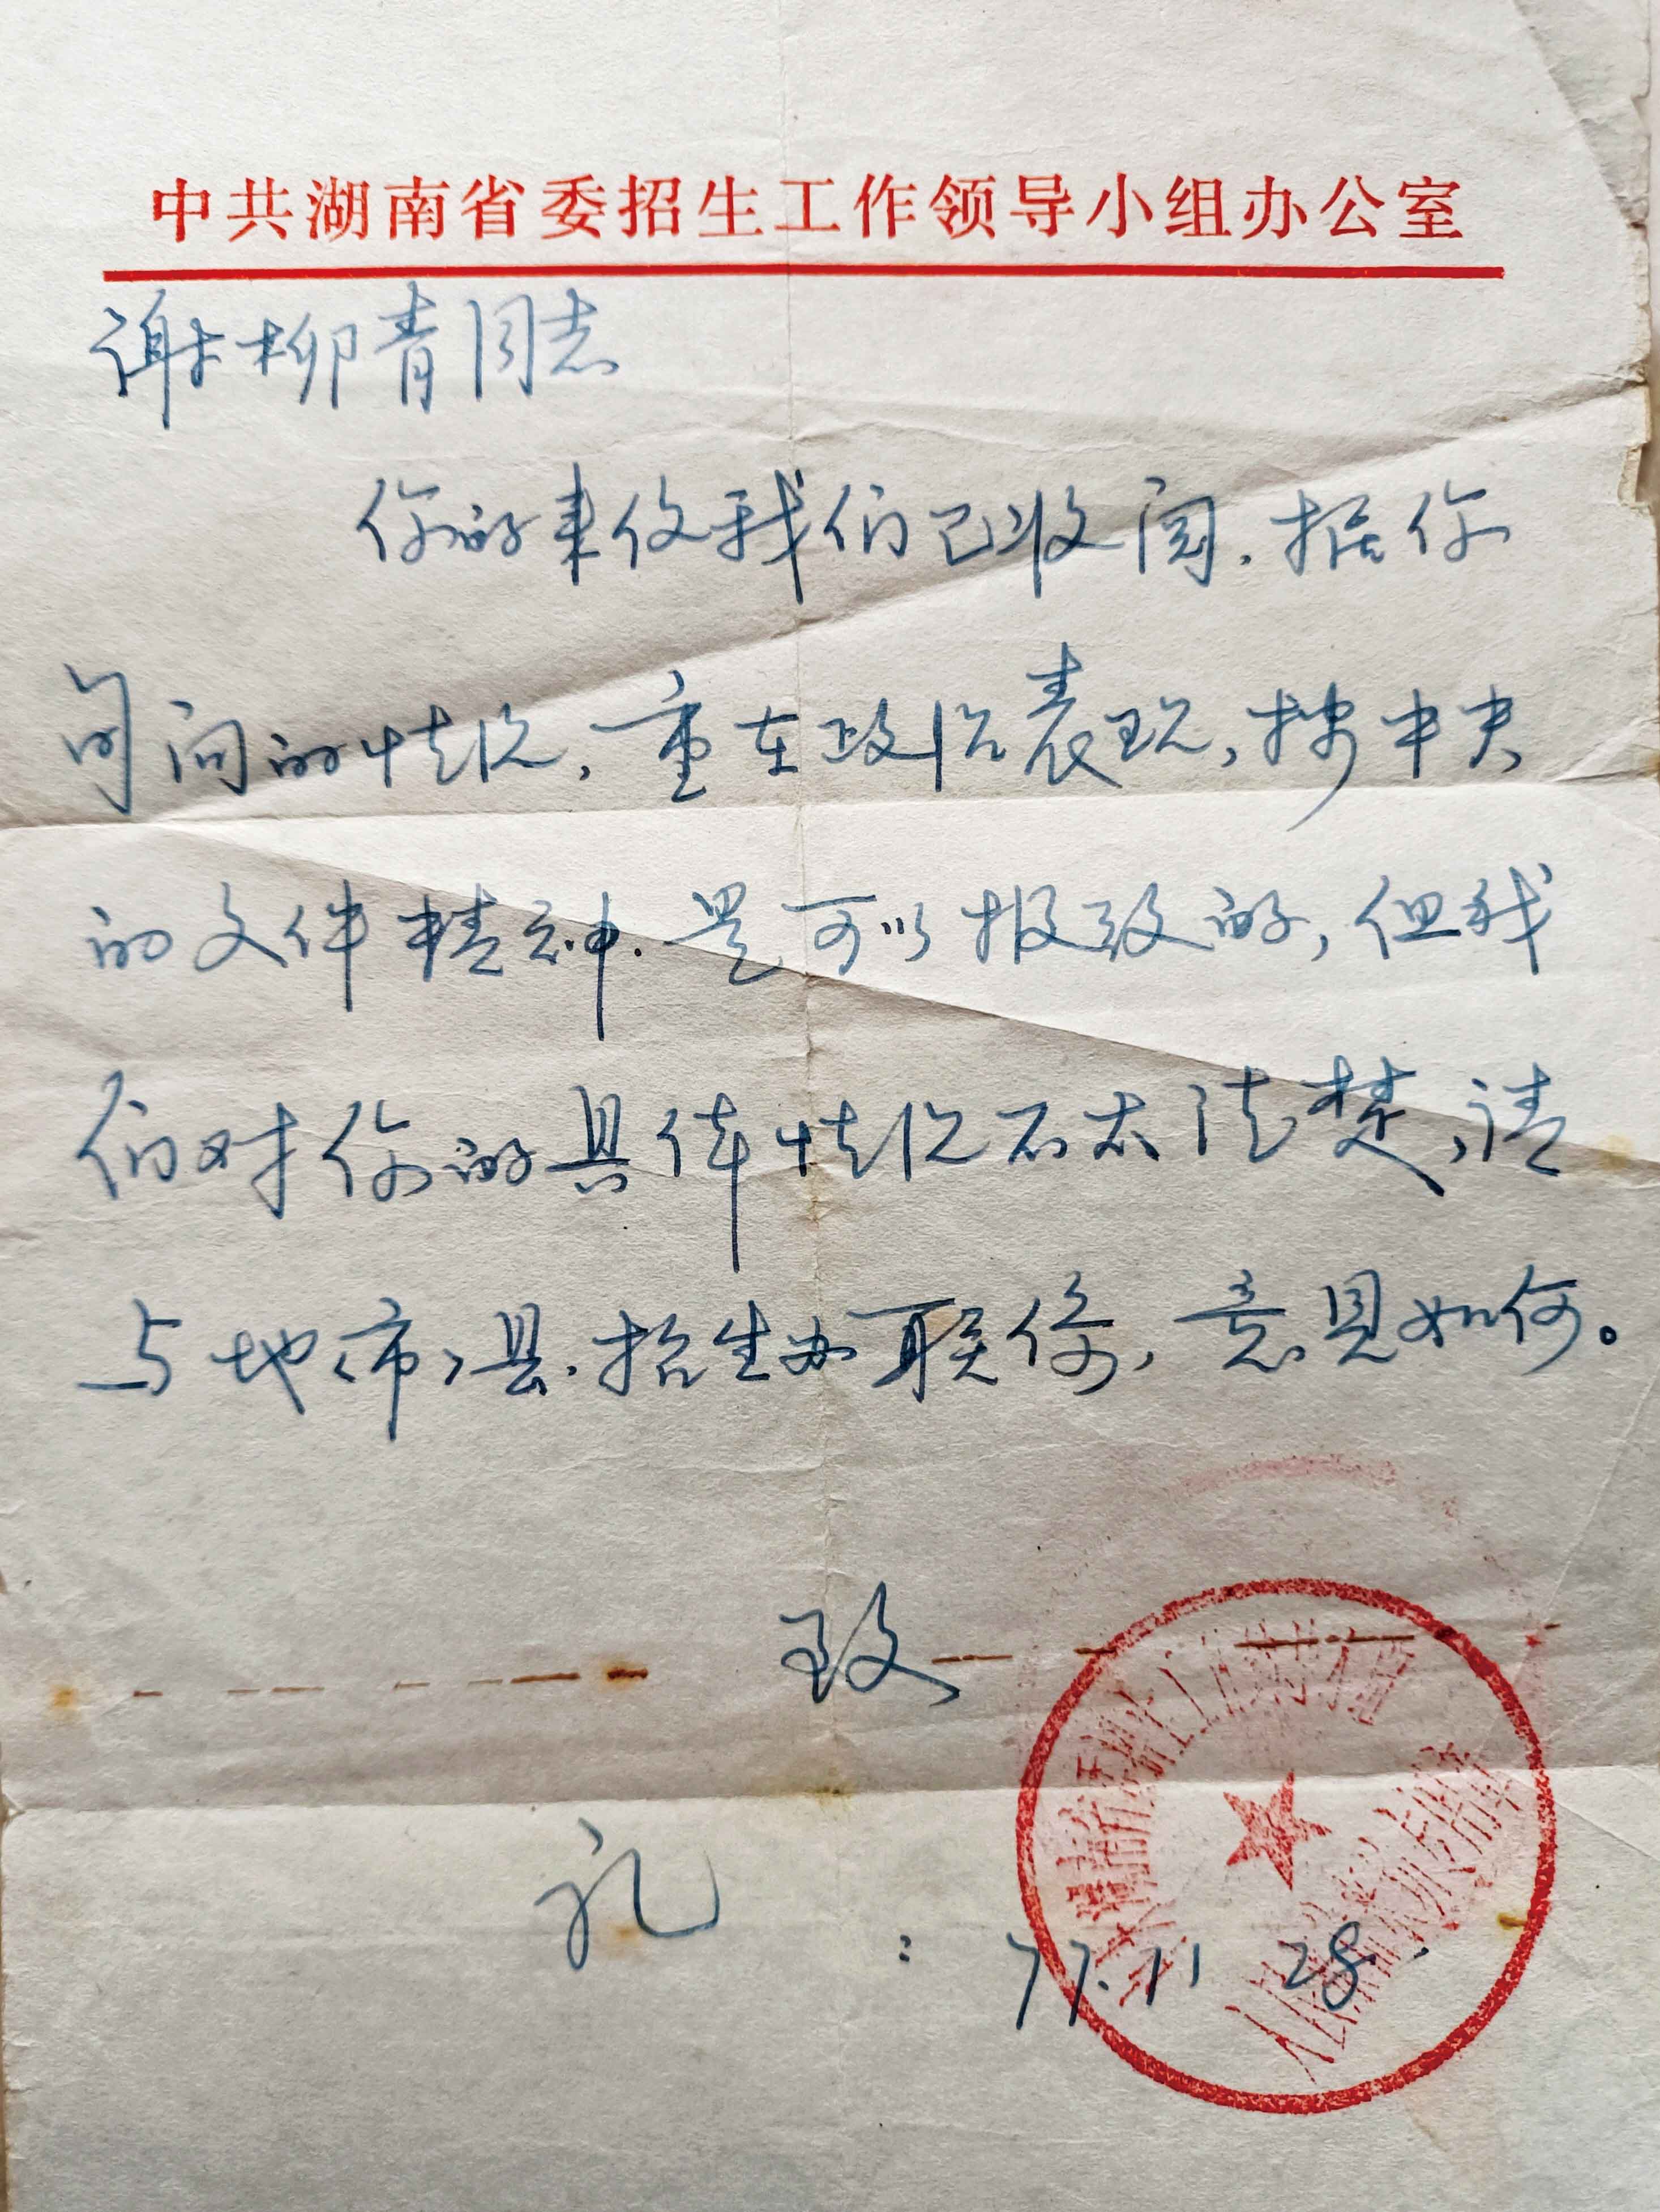 中共湖南省委招生工作领导小组办公室
谢柳青同志
你的来信我们已收阅.据你
询问的情况,重在政治表现,按中央
的文件精神.是可以报考的,但我
们对你的具体情况不太清楚,请
与地(市)县.招生办联系,意见如何。
致
礼
77.11 28.